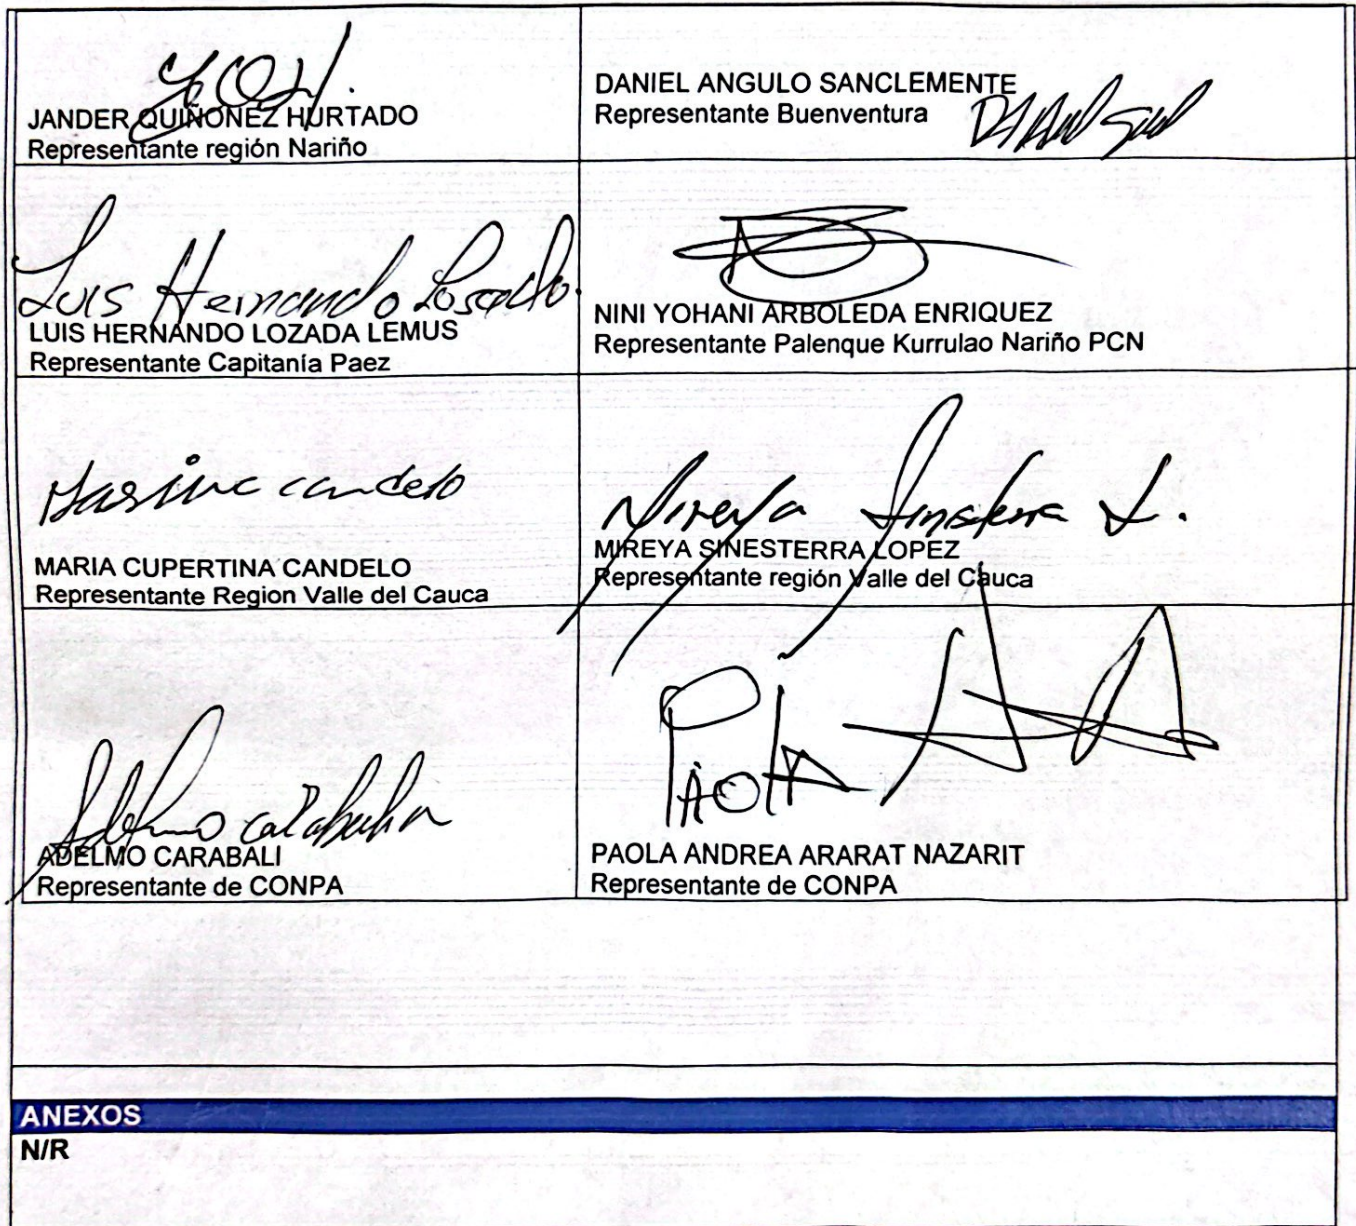 JANDER QUIÑONEZ HURTADO
Representante región Nariño
DANIEL ANGULO SANCLEMENTE
Representante Buenventura
Luis Hernando Losada
LUIS HERNANDO LOZADA LEMUS
Representante Capitanía Paez
NINI YOHANI ARBOLEDA ENRIQUEZ
Representante Palenque Kurrulao Nariño PCN
candelo
MARIA CUPERTINA CANDELO
Representante Region Valle del Cauca
Mireya Sinisterra L.
MIREYA SINESTERRA LOPEZ
Representante región Valle del Cauca
Adelmo Carabali
ADELMO CARABALI
Representante de CONPA
PAOLA
PAOLA ANDREA ARARAT NAZARIT
Representante de CONPA
ANEXOS
N/R